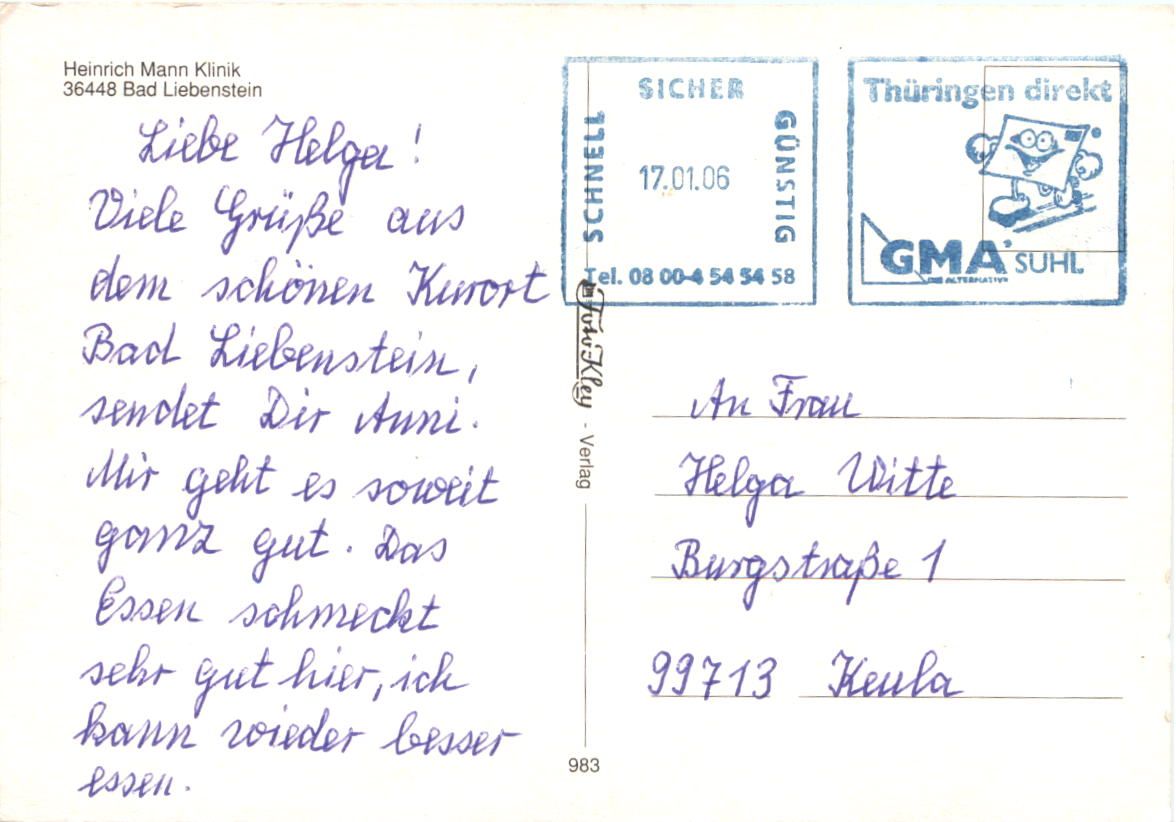 Heinrich Mann Klinik
36448 Bad Liebenstein
Liebe Helga!
Viele Grüße aus
dem schönen Kurort
Bad Liebenstein,
sendet Dir Anni.
Mir geht es soweit
ganz gut. Das
Essen schmeckt
sehr gut hier, ich
kann wieder besser
essen.
SICHER
SCHNELL
GÜNSTIG
17.01.06
Tel. 08 00-4 54 54 58
Thüringen direkt
GMA SUHL
DIE ALTERNATIVE
Foto-Kley - Verlag
983
An Frau
Helga Witte
Burgstraße 1
99713 Keula